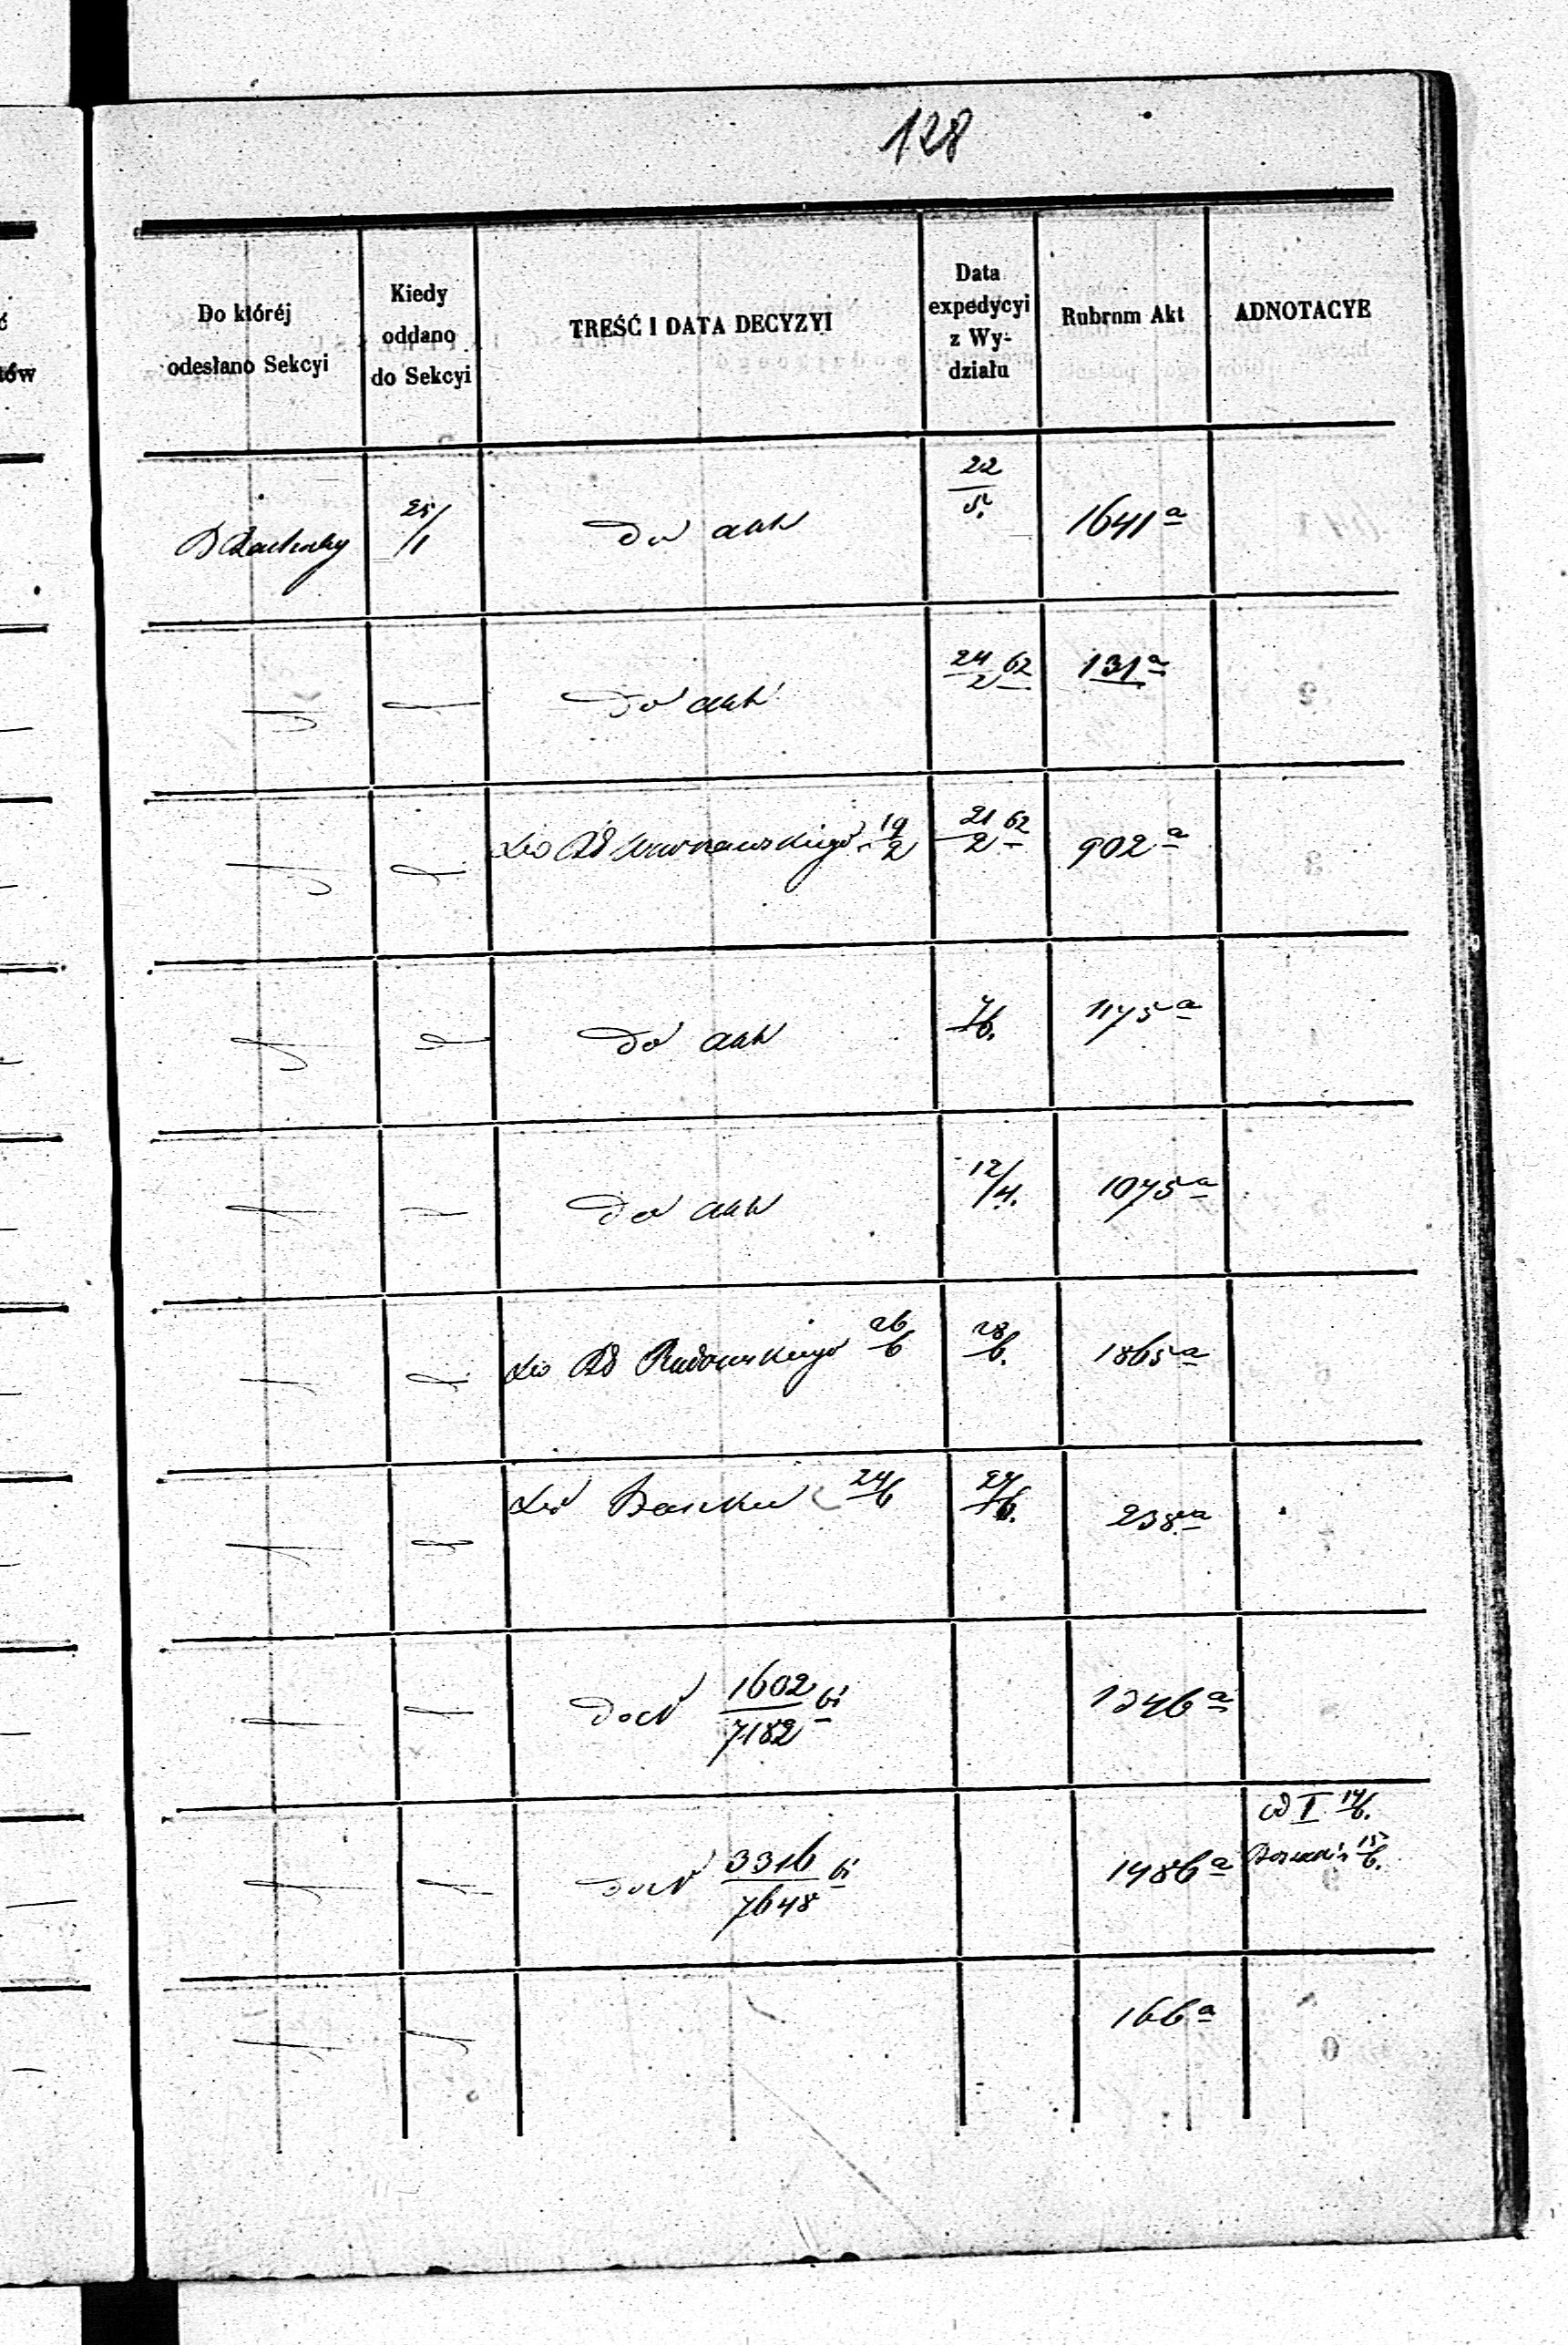 128
Do któréj odesłano Sekcyi | Kiedy oddano do Sekcyi | TREŚĆ I DATA DECYZYI | Data expedycyi z Wy- działu | Rubrum Akt | ADNOTACYE
25/1 | Do akt | 22/5. | 1641 a
Do akt | 24/2 62 | 131 a
Do RG Warszawskiego 19/2 | 21/2 62 | 902 a
Do akt | 7/6. | 1175 a
Do akt | 12/4. | 1075 a
Do RG Radomskiego 26/6 | 28/6. | 1865 a
Do Banku 24/6 | 27/6. | 238 a
Do N 1602/7182 bi | 1346 a
Do N 3316/7648 bi | 1486 a | od I 14/6. 15/6.
166 a